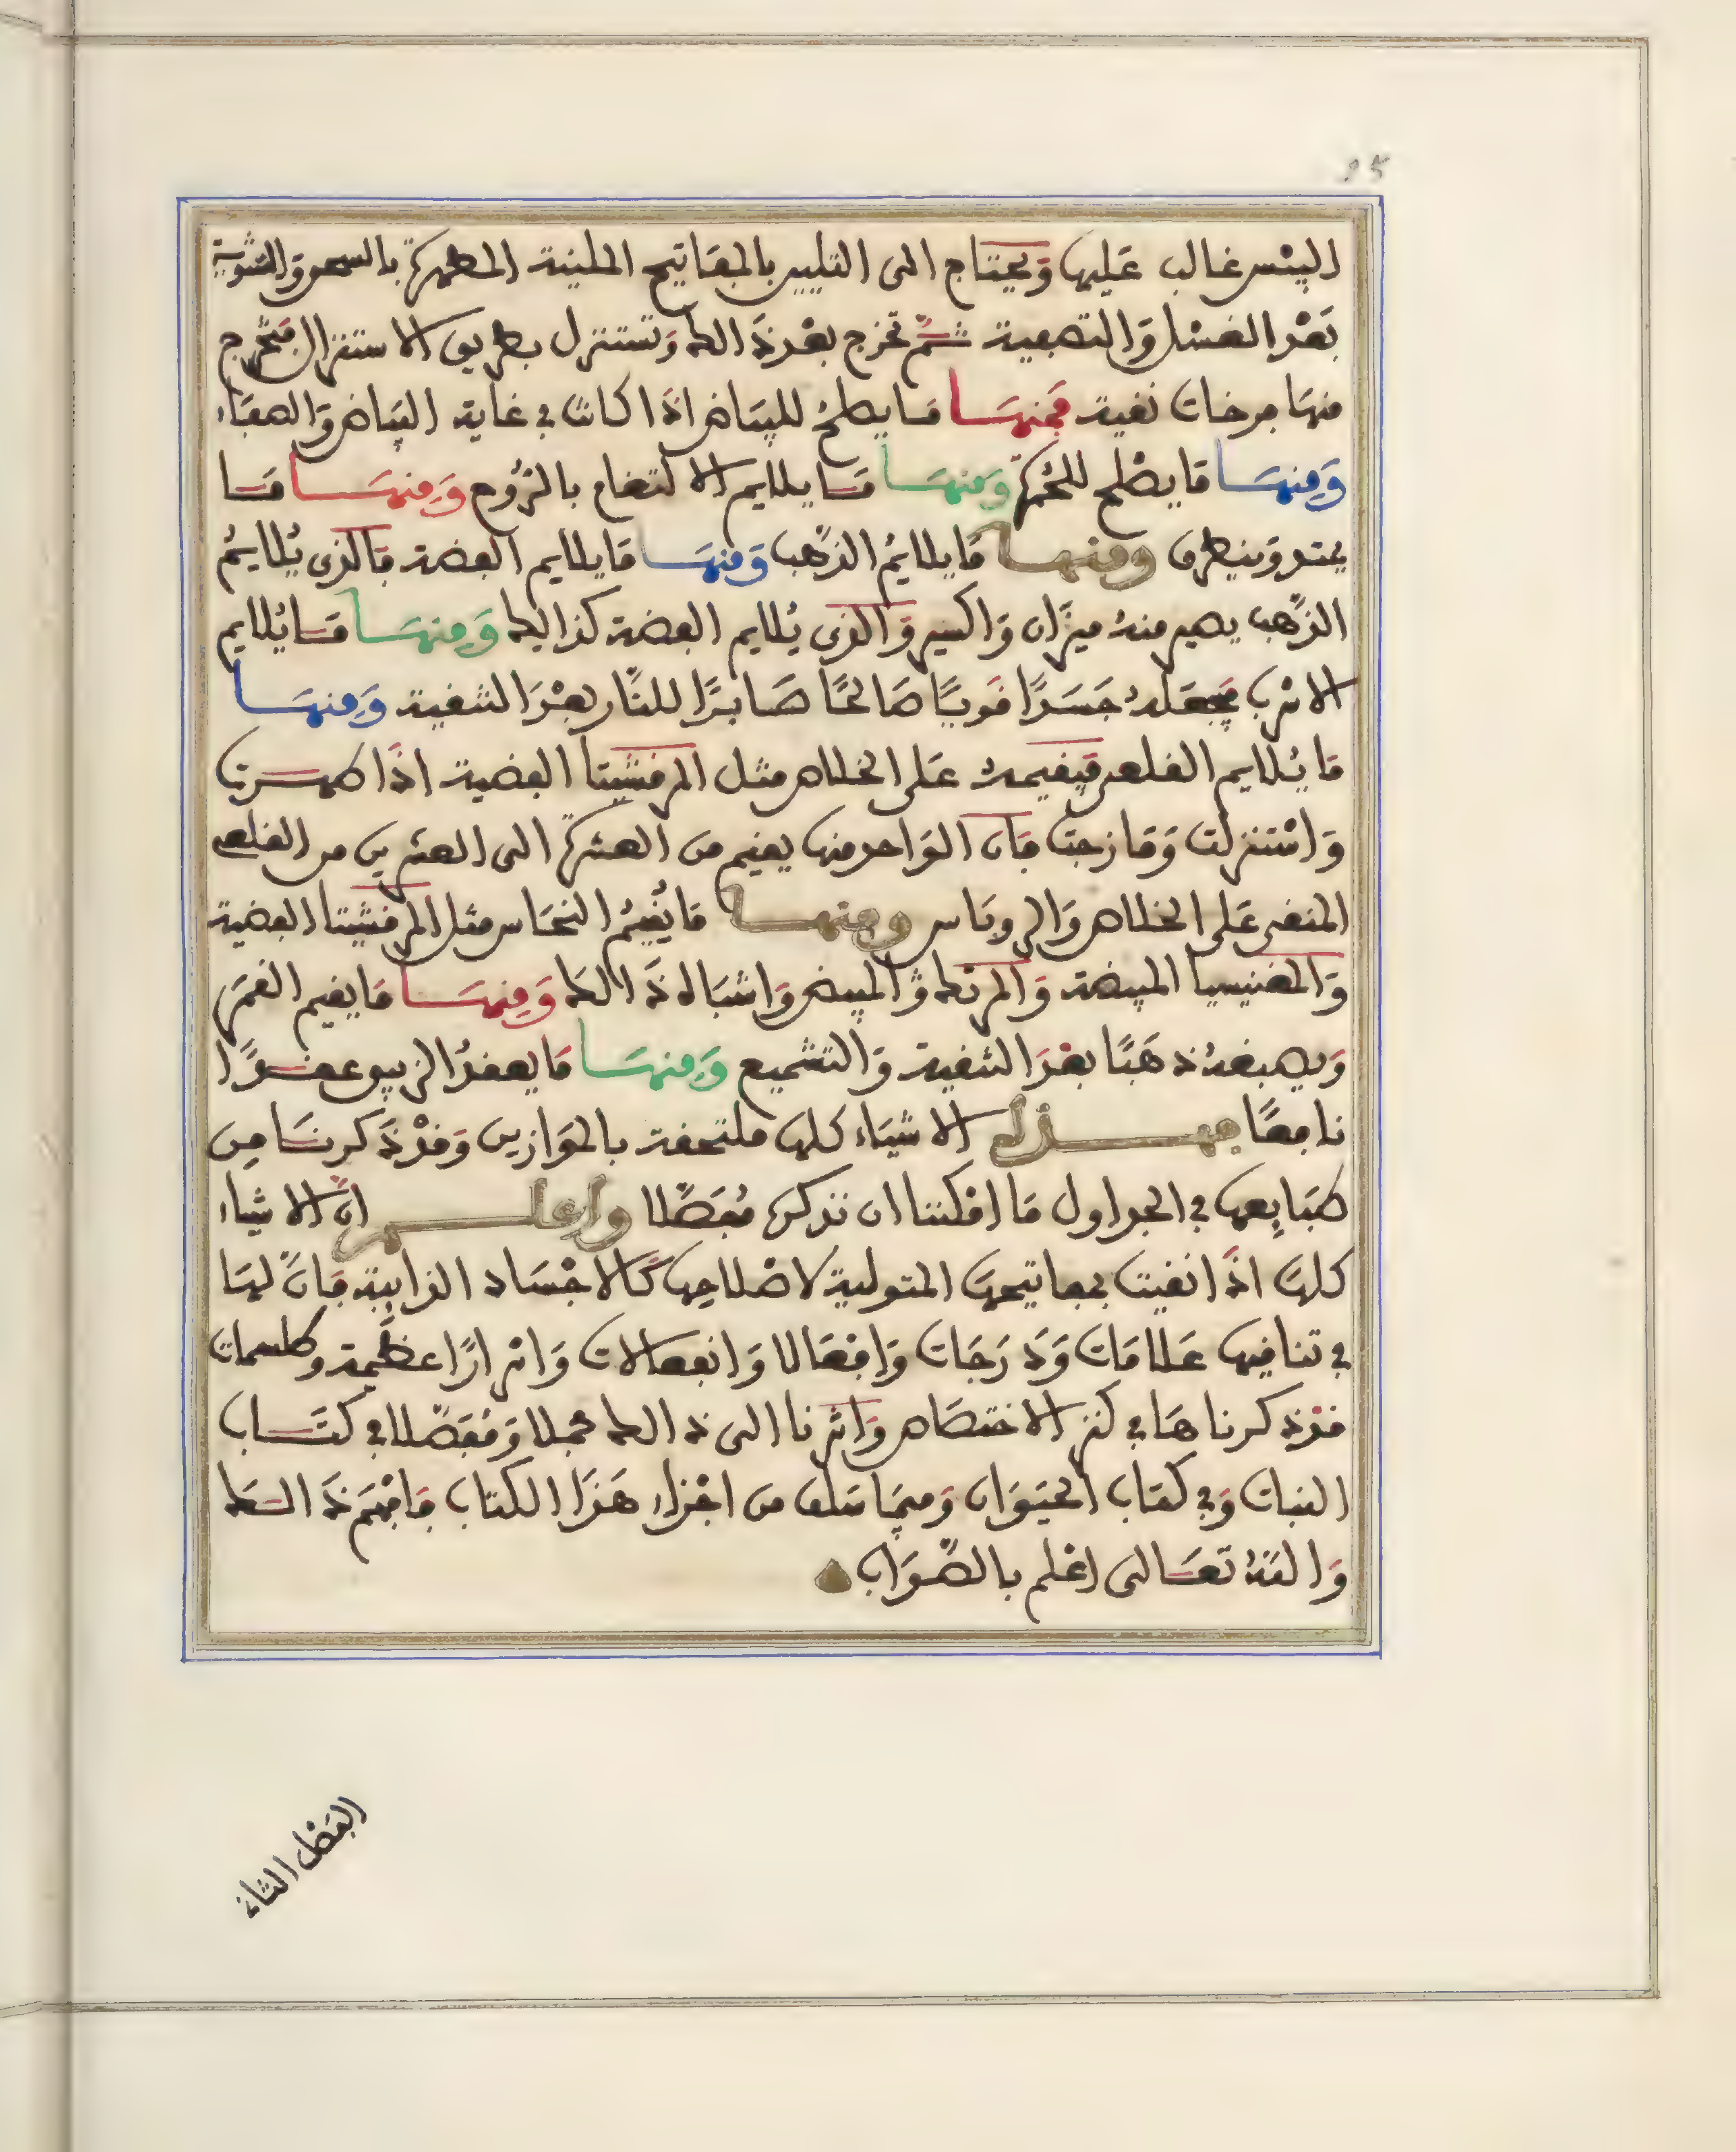 اليبس غالب عليها وَيحتاج الى التليين بالمفاتيح الملينة المطهرة بالسحق وَالتشوية
بَعْد الغسْل وَالتصفية ثمّ تخرج بعْد ذَالك وَتستنزل بطريق الاستنزال فتخرج
منهَا جرخات نقية فمِنهَا مَا يصلحُ للبيَاض اذَا كانت في غاية البيَاض وَالصفَاء
وَمِنهَا مَا يصْلح للحُمرة وَمنهَا مَا يلايم الالتغام بالرُّوح وَمِنهَا مَا
يمتد وَينطرق ومنها مَا يلايمُ الذّهب وَمِنهَا مَا يلايم الفضة فَالذى يُلايمُ
الذّهب يصير منهُ ميزَان وَاكسير وَالذى يُلايم الفضة كذالك وَمِنهَا مَا يُلايم
الاسْرب فيجعَلهُ جَسَدًا قويًا صَالحًا صَابرًا للنّار بعْدَ التنقية وَمِنهَا
مَا يُلايم القلعى فيقيمهُ عَلى الخلاص مثل المرقشيتا الفضية اذَا طهرت
وَاسْتنزلت وَمَازجت فان الوَاحد منها يقيم من العشرة الى العشرين من القلعى
المنقى عَلى الخلاص وَالروبَاس ومنها مَا يُقيمُ النحَاس مثل المرقشيتا الفضية
وَالمغنيسيا المبيضة وَالمرتك وَالمبيض وَاشبَاه ذَالك وَمِنهَا مَا يقيم القمَر
وَيصبغهُ ذهَبًا بعْدَ التنقية وَالتشميع وَمِنهَا مَا يعقدُ الزيبق عقدًا
نافعًا فهذه الاشيَاء كلهَا ملتحقة بالموَازين وَقدْ ذَكرنَا مِن
طبَايِعهَا في الجداول مَا امْكننا ان نذكرهَ مُفصَّلا واعلم انّ الاشياء
كلهَا اذَا نقيت بمفاتيحهَا المتولية لاصْلاحِهَا كَالاجْسَاد الذايبة فانّ لهَا
في تناقيها عَلامَات وَدَرَجَات وَافعَالا وَانفعَالات وَاسْرارًا عظيمة وطلسمات
قدْ ذكرناهَا في كنز الاختصَاص وَاشرنا الى ذالك مجملا وَمُفصّلا في كتَاب
النبات وَفي كتاب الحيَوان وَفيمَا سَلف من اجْزاء هَذَا الكتاب فافْهَم ذَالك
وَاللهُ تعَالى اعْلم بالصّوَاب
الفصْل الثاني